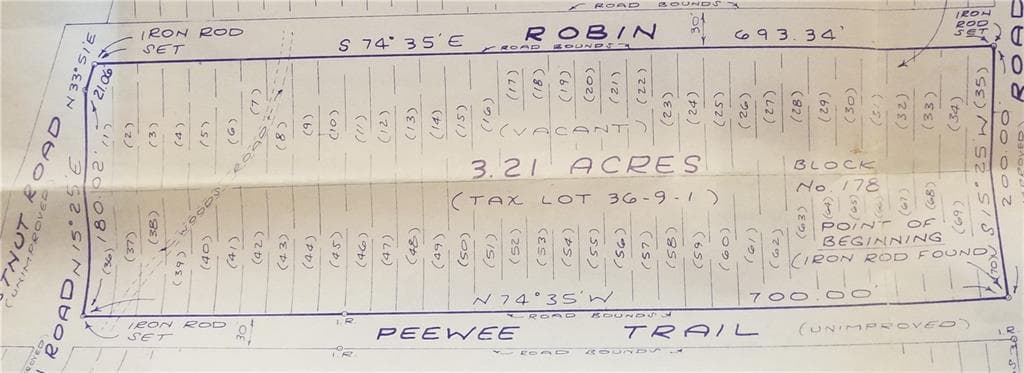 ROAD BOUNDS
IRON ROD
SET
S 74° 35' E
ROBIN
693.34'
30'
IRON
ROD
SET
ROAD BOUNDS
N 33° 51' E
21.06'
(1) (2) (3) (4) (5) (6) (7) (8) (9) (10) (11) (12) (13) (14) (15) (16) (17) (18) (19) (20) (21) (22) (23) (24) (25) (26) (27) (28) (29) (30) (31) (32) (33) (34) (35)
(VACANT)
3.21 ACRES
(TAX LOT 36-9-1)
BLOCK
No. 178
WOODS ROAD
TNUT ROAD
(UNIMPROVED)
N 15° 25' E
180.02
S 15° 25' W
200.00
ROAD
(36) (37) (38) (39) (40) (41) (42) (43) (44) (45) (46) (47) (48) (49) (50) (51) (52) (53) (54) (55) (56) (57) (58) (59) (60) (61) (62) (63) (64) (65) (66) (67) (68) (69) (70)
POINT OF
BEGINNING
(IRON ROD FOUND)
N 74° 35' W
700.00'
ROAD BOUNDS
IRON ROD
SET
30'
I.R.
PEEWEE TRAIL (UNIMPROVED)
I.R.
I.R.
ROAD BOUNDS
ROAD